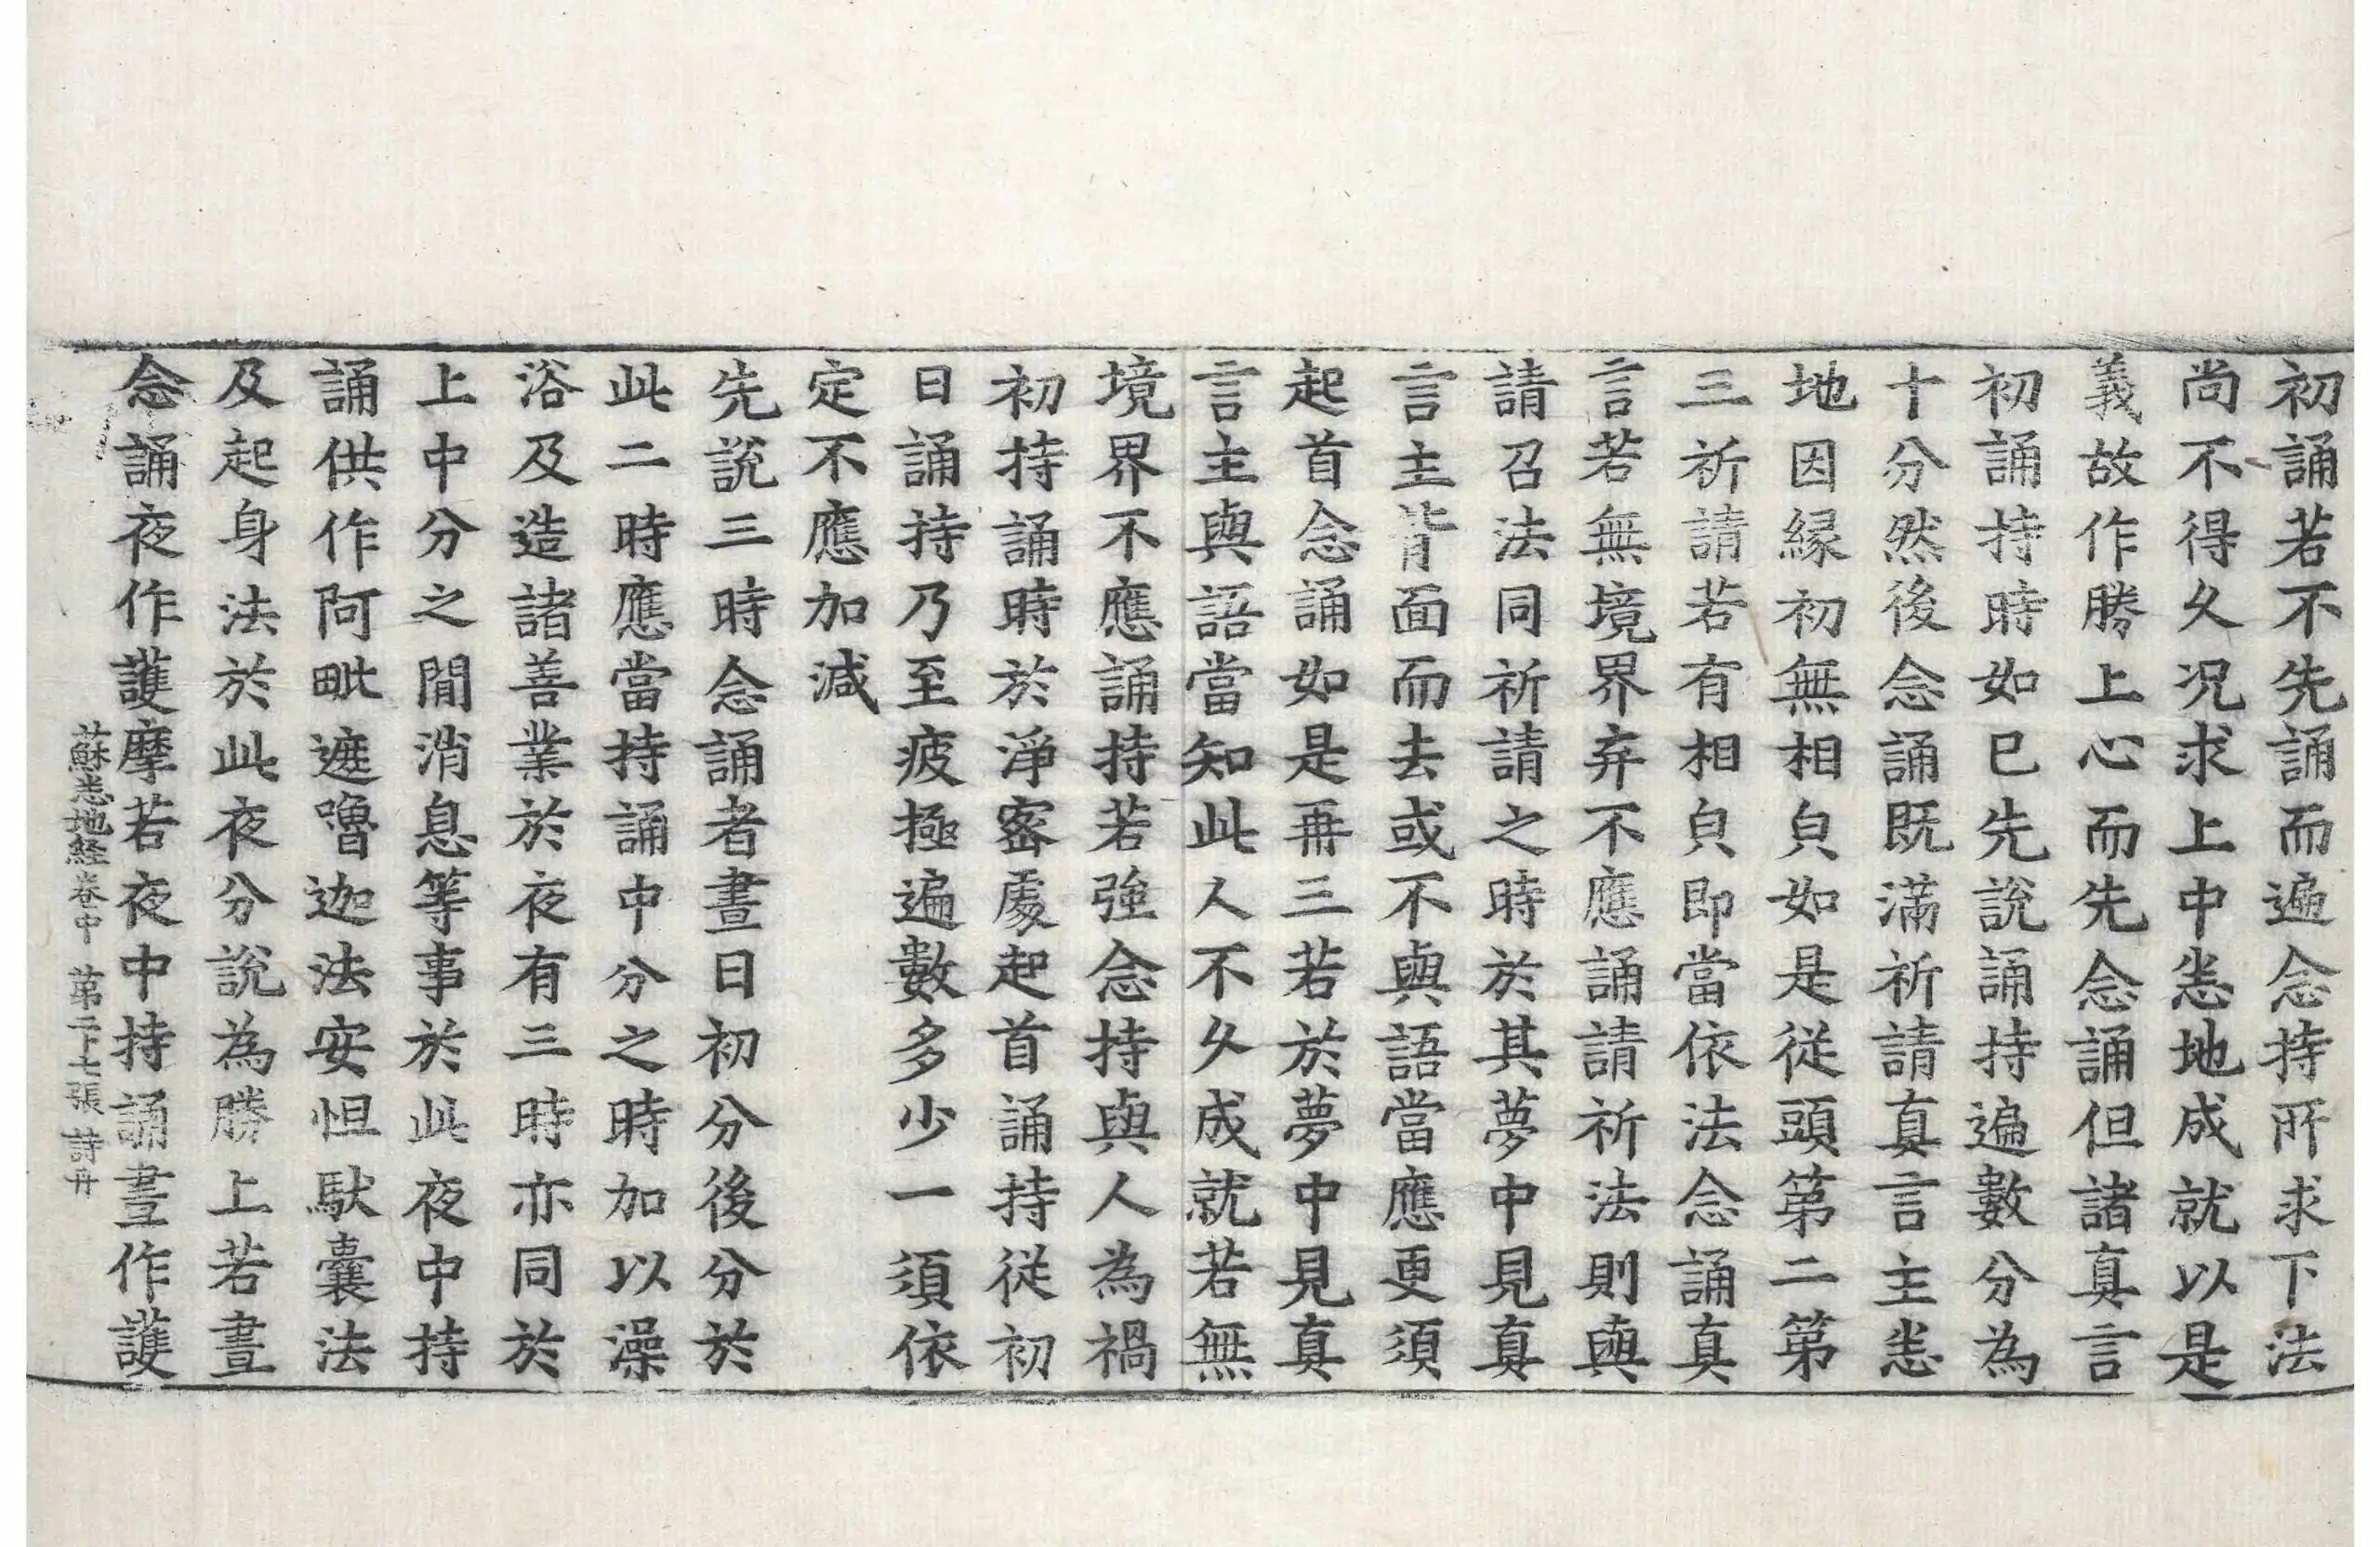 初誦若不先誦而遍念持所求下法
尚不得久况求上中悉地成就以是
義故作勝上心而先念誦但諸真言
初誦持時如已先說誦持遍數分為
十分然後念誦既滿祈請真言主悉
地因緣初無相皃如是從頭第二第
三祈請若有相皃即當依法念誦真
言若無境界弃不應誦請祈法則與
請召法同祈請之時於其夢中見真
言主背面而去或不與語當應更須
起首念誦如是再三若於夢中見真
言主與語當知此人不久成就若無
境界不應誦持若強念持與人為禍
初持誦時於淨密處起首誦持從初
日誦持乃至疲極遍數多少一須依
定不應加減
先說三時念誦者晝日初分後分於
此二時應當持誦中分之時加以澡
浴及造諸善業於夜有三時亦同於
上中分之閒消息等事於此夜中持
誦供作阿毗遮嚕迦法安怛馱囊法
及起身法於此夜分說為勝上若晝
念誦夜作護摩若夜中持誦晝作護
蘇悉地經卷中 第二十七張 詩冊